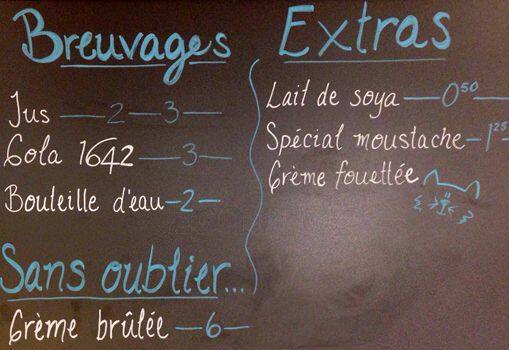 Breuvages
Jus — 2 — 3 —
Cola 1642 — 3 —
Bouteille d'eau — 2 —
Sans oublier...
Crème brûlée — 6 —
Extras
Lait de soya — 0⁵⁰ —
Spécial moustache — 1²⁵
Crème fouettée